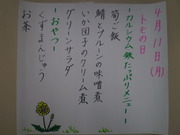 4月11日(月)
トモの日
-カルシウム・鉄たっぷりメニュー-
筍ご飯
鯖とプルーンの味噌煮
いか団子のクリーム煮
グリーンサラダ
-おやつ-
くずまんじゅう
お茶